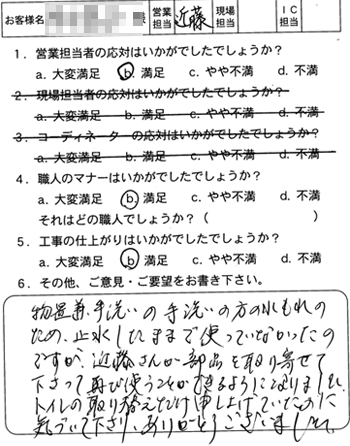 お客様名 様 営業担当 近藤 現場担当 IC担当
1．営業担当者の応対はいかがでしたでしょうか？
a. 大変満足 b. 満足 c. やや不満 d. 不満
2．現場担当者の応対はいかがでしたでしょうか？
a. 大変満足 b. 満足 c. やや不満 d. 不満
3．コーディネーターの応対はいかがでしたでしょうか？
a. 大変満足 b. 満足 c. やや不満 d. 不満
4．職人のマナーはいかがでしたでしょうか？
a. 大変満足 b. 満足 c. やや不満 d. 不満
それはどの職人でしょうか？（ ）
5．工事の仕上がりはいかがでしたでしょうか？
a. 大変満足 b. 満足 c. やや不満 d. 不満
6．その他、ご意見・ご要望をお書き下さい。
物置兼手洗いの手洗いの方の水もれの
ため、止水したままで使っていなかったの
ですが、近藤さんが部品を取り寄せて
下さって再び使うことができるようになりました。
トイレの取り替えだけ申し上げていたのに
気づいて下さり、ありがとうございました。